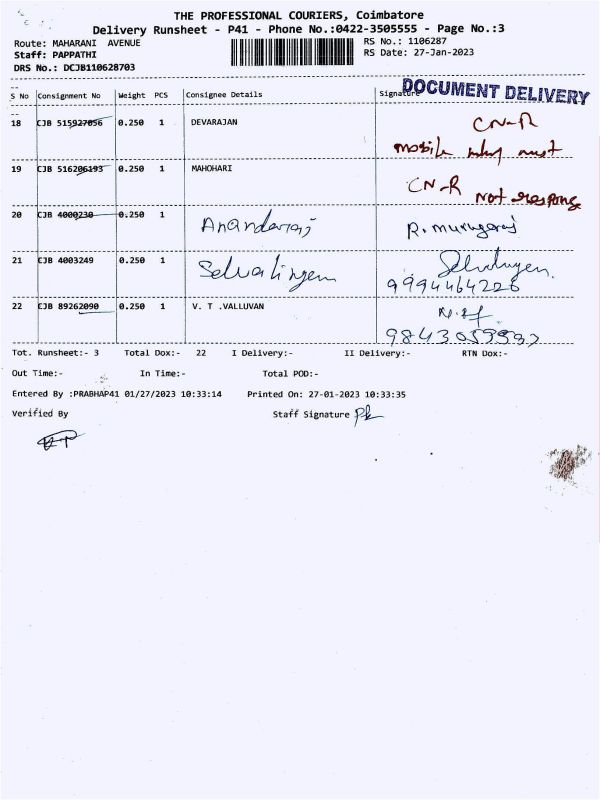 THE PROFESSIONAL COURIERS, Coimbatore
Delivery Runsheet - P41 - Phone No.:0422-3505555 - Page No.:3
Route: MAHARANI AVENUE
RS No.: 1106287
Staff: PAPPATHI
RS Date: 27-Jan-2023
DRS No.: DCJB110628703
DOCUMENT DELIVERY
S No Consignment No Weight PCS Consignee Details Signature
18 CJB 515927056 0.250 1 DEVARAJAN CN-R
mobile
19 CJB 516206193 0.250 1 MAHOHARI CN-R Not response
20 CJB 4000230 0.250 1 Anandaraj R. murugaraj
21 CJB 4003249 0.250 1 Selvalingem
9994464226
22 CJB 89262090 0.250 1 V. T .VALLUVAN
Tot. Runsheet:- 3 Total Dox:- 22 I Delivery:- II Delivery:- RTN Dox:-
Out Time:- In Time:- Total POD:-
Entered By :PRABHAP41 01/27/2023 10:33:14 Printed On: 27-01-2023 10:33:35
Verified By Staff Signature